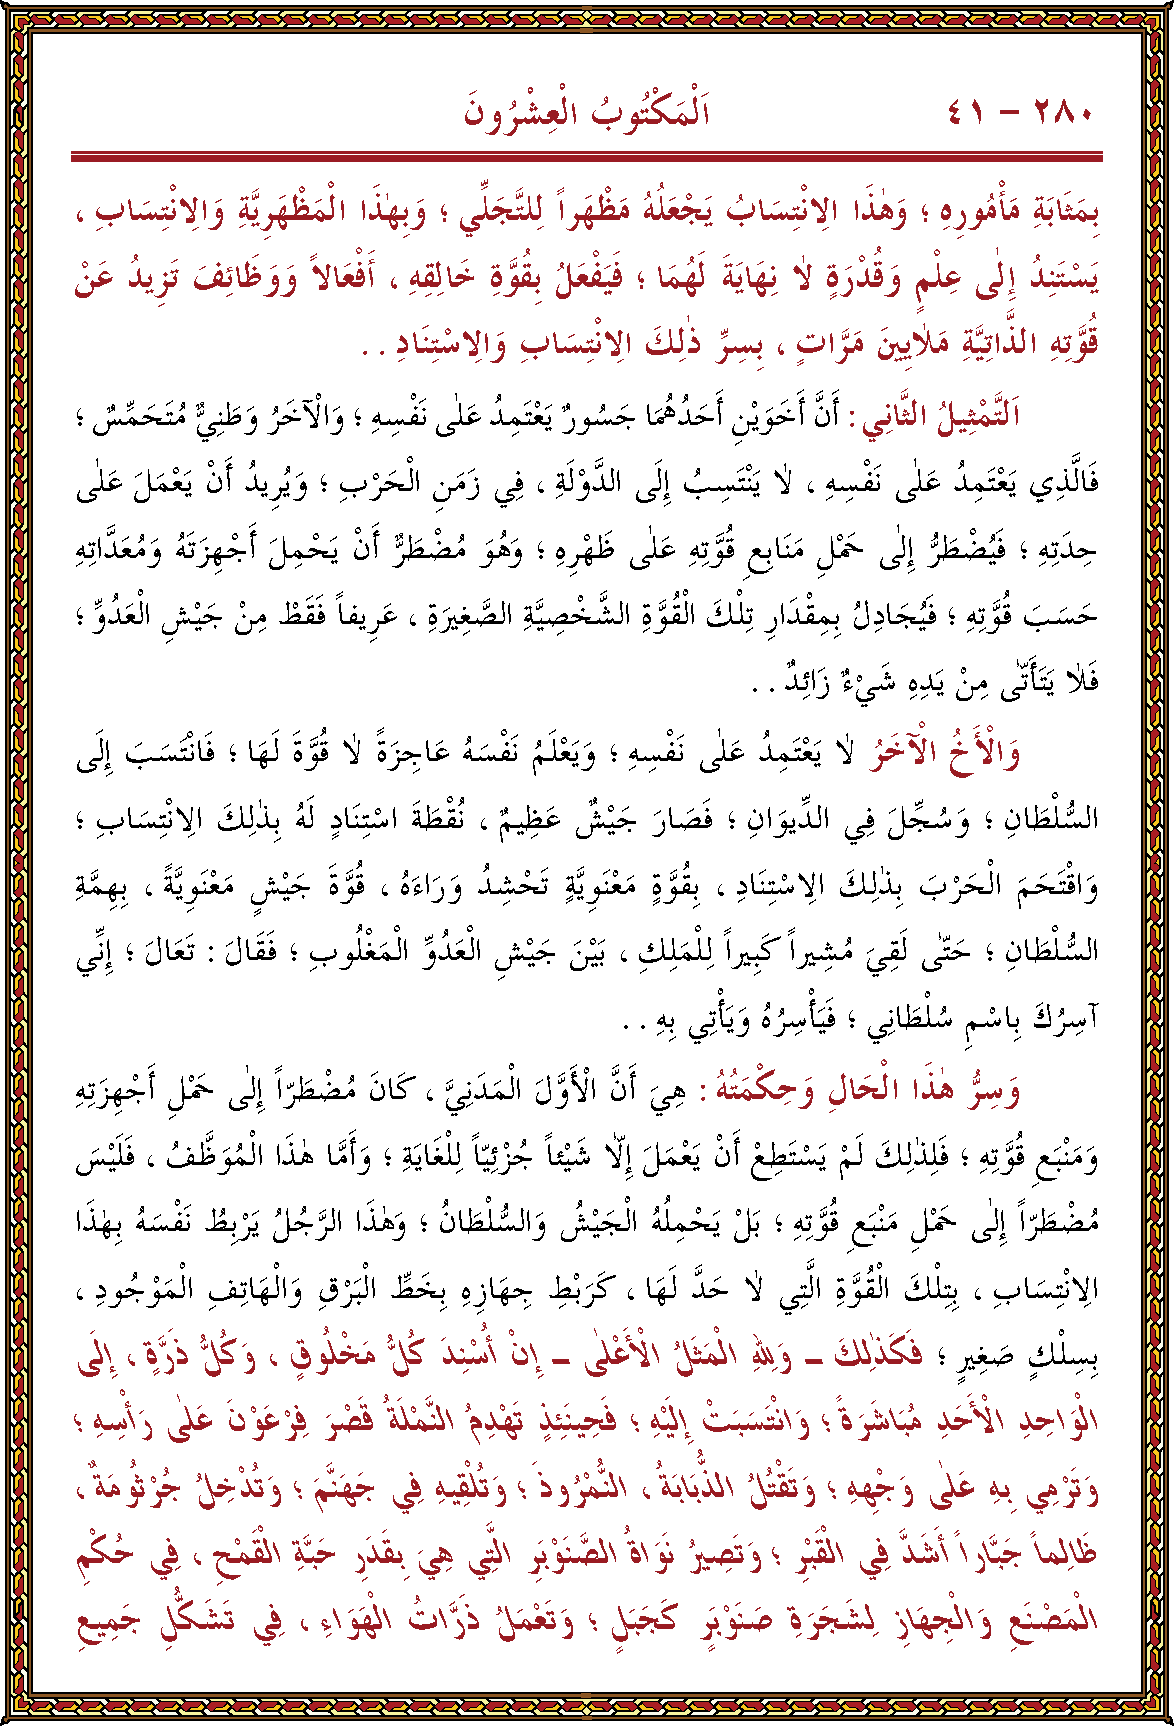 ٢٨٠ – ٤١ اَلْمَكْتُوبُ الْعِشْرُونَ
بِمَثَابَةِ مَأْمُورِهِ ؛ وَهٰذَا الِانْتِسَابُ يَجْعَلُهُ مَظْهَراً لِلتَّجَلِّي ؛ وَبِهٰذَا الْمَظْهَرِيَّةِ وَالِانْتِسَابِ ،
يَسْتَنِدُ إِلٰى عِلْمٍ وَقُدْرَةٍ لاٰ نِهَايَةَ لَهُمَا ؛ فَيَفْعَلُ بِقُوَّةِ خَالِقِهِ ، أَفْعَالاً وَوَظَائِفَ تَزِيدُ عَنْ
قُوَّتِهِ الذَّاتِيَّةِ مَلاٰيِينَ مَرَّاتٍ ، بِسِرِّ ذٰلِكَ الِانْتِسَابِ وَالِاسْتِنَادِ . .
اَلتَّمْثِيلُ الثَّانِي : أَنَّ أَخَوَيْنِ أَحَدُهُمَا جَسُورٌ يَعْتَمِدُ عَلٰى نَفْسِهِ ؛ وَالْآخَرُ وَطَنِيٌّ مُتَحَمِّسٌ ؛
فَالَّذِي يَعْتَمِدُ عَلٰى نَفْسِهِ ، لاٰ يَنْتَسِبُ إِلَى الدَّوْلَةِ ، فِي زَمَنِ الْحَرْبِ ؛ وَيُرِيدُ أَنْ يَعْمَلَ عَلٰى
حِدَتِهِ ؛ فَيُضْطَرُّ إِلٰى حَمْلِ مَنَابِعِ قُوَّتِهِ عَلٰى ظَهْرِهِ ؛ وَهُوَ مُضْطَرٌّ أَنْ يَحْمِلَ أَجْهِزَتَهُ وَمُعَدَّاتِهِ
حَسَبَ قُوَّتِهِ ؛ فَيُجَادِلُ بِمِقْدَارِ تِلْكَ الْقُوَّةِ الشَّخْصِيَّةِ الصَّغِيَرةِ ، عَرِيفاً فَقَطْ مِنْ جَيْشِ الْعَدُوِّ ؛
فَلاٰ يَتَأَتّٰى مِنْ يَدِهِ شَيْءٌ زَائِدٌ . .
وَالْأَخُ الْآخَرُ لاٰ يَعْتَمِدُ عَلٰى نَفْسِهِ ؛ وَيَعْلَمُ نَفْسَهُ عَاجِزَةً لاٰ قُوَّةَ لَهَا ؛ فَانْتَسَبَ إِلَى
السُّلْطَانِ ؛ وَسُجِّلَ فِي الدِّيوَانِ ؛ فَصَارَ جَيْشٌ عَظِيمٌ ، نُقْطَةَ اسْتِنَادٍ لَهُ بِذٰلِكَ الِانْتِسَابِ ؛
وَاقْتَحَمَ الْحَرْبَ بِذٰلِكَ الِاسْتِنَادِ ، بِقُوَّةٍ مَعْنَوِيَّةٍ تَحْشِدُ وَرَاءَهُ ، قُوَّةَ جَيْشٍ مَعْنَوِيَّةً ، بِهِمَّةِ
السُّلْطَانِ ؛ حَتّٰى لَقِيَ مُشِيراً كَبِيراً لِلْمَلِكِ ، بَيْنَ جَيْشِ الْعَدُوِّ الْمَغْلُوبِ ؛ فَقَالَ : تَعَالَ ؛ إِنِّي
آسِرُكَ بِاسْمِ سُلْطَانِي ؛ فَيَأْسِرُهُ وَيَأْتِي بِهِ . .
وَسِرُّ هٰذَا الْحَالِ وَحِكْمَتُهُ : هِيَ أَنَّ الْأَوَّلَ الْمَدَنِيَّ ، كَانَ مُضْطَرّاً إِلٰى حَمْلِ أَجْهِزَتِهِ
وَمَنْبَعِ قُوَّتِهِ ؛ فَلِذٰلِكَ لَمْ يَسْتَطِعْ أَنْ يَعْمَلَ إِلاّٰ شَيْئاً جُزْئِيّاً لِلْغَايَةِ ؛ وَأَمَّا هٰذَا الْمُوَظَّفُ ، فَلَيْسَ
مُضْطَرّاً إِلٰى حَمْلِ مَنْبَعِ قُوَّتِهِ ؛ بَلْ يَحْمِلُهُ الْجَيْشُ وَالسُّلْطَانُ ؛ وَهٰذَا الرَّجُلُ يَرْبِطُ نَفْسَهُ بِهٰذَا
الِانْتِسَابِ ، بِتِلْكَ الْقُوَّةِ الَّتِي لاٰ حَدَّ لَهَا ، كَرَبْطِ جِهَازِهِ بِخَطِّ الْبَرْقِ وَالْهَاتِفِ الْمَوْجُودِ ،
بِسِلْكٍ صَغِيرٍ ؛ فَكَذٰلِكَ – وَلِلّٰهِ الْمَثَلُ الْأَعْلٰى – إِنْ أُسْنِدَ كُلُّ مَخْلُوقٍ ، وَكُلُّ ذَرَّةٍ ، إِلَى
الْوَاحِدِ الْأَحَدِ مُبَاشَرَةً ؛ وَانْتَسَبَتْ إِلَيْهِ ؛ فَحِينَئِذٍ تَهْدِمُ النَّمْلَةُ قَصْرَ فِرْعَوْنَ عَلٰى رَأْسِهِ ؛
وَتَرْمِي بِهِ عَلٰى وَجْهِهِ ؛ وَتَقْتُلُ الذُّبَابَةُ ، النُّمْرُوذَ ؛ وَتُلْقِيهِ فِي جَهَنَّمَ ؛ وَتُدْخِلُ جُرْثُومَةٌ ،
ظَالِماً جَبَّاراً أَشَدَّ فِي الْقَبْرِ ؛ وَتَصِيرُ نَوَاةُ الصَّنَوْبَرِ الَّتِي هِيَ بِقَدَرِ حَبَّةِ الْقَمْحِ ، فِي حُكْمِ
الْمَصْنَعِ وَالْجِهَازِ لِشَجَرَةِ صَنَوْبَرٍ كَجَبَلٍ ؛ وَتَعْمَلُ ذَرَّاتُ الْهَوَاءِ ، فِي تَشَكُّلِ جَمِيعِ